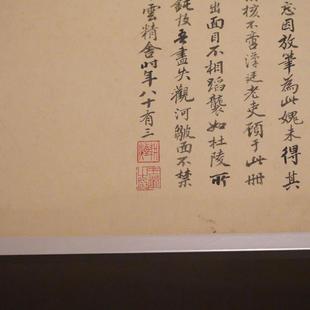 忘因放筆為此媿未得其
核不啻漢廷老吏頋于此冊
出面目不相蹈襲如杜陵所
銕技吾盡失觀河皺面不禁
雲精舍時年八十有三